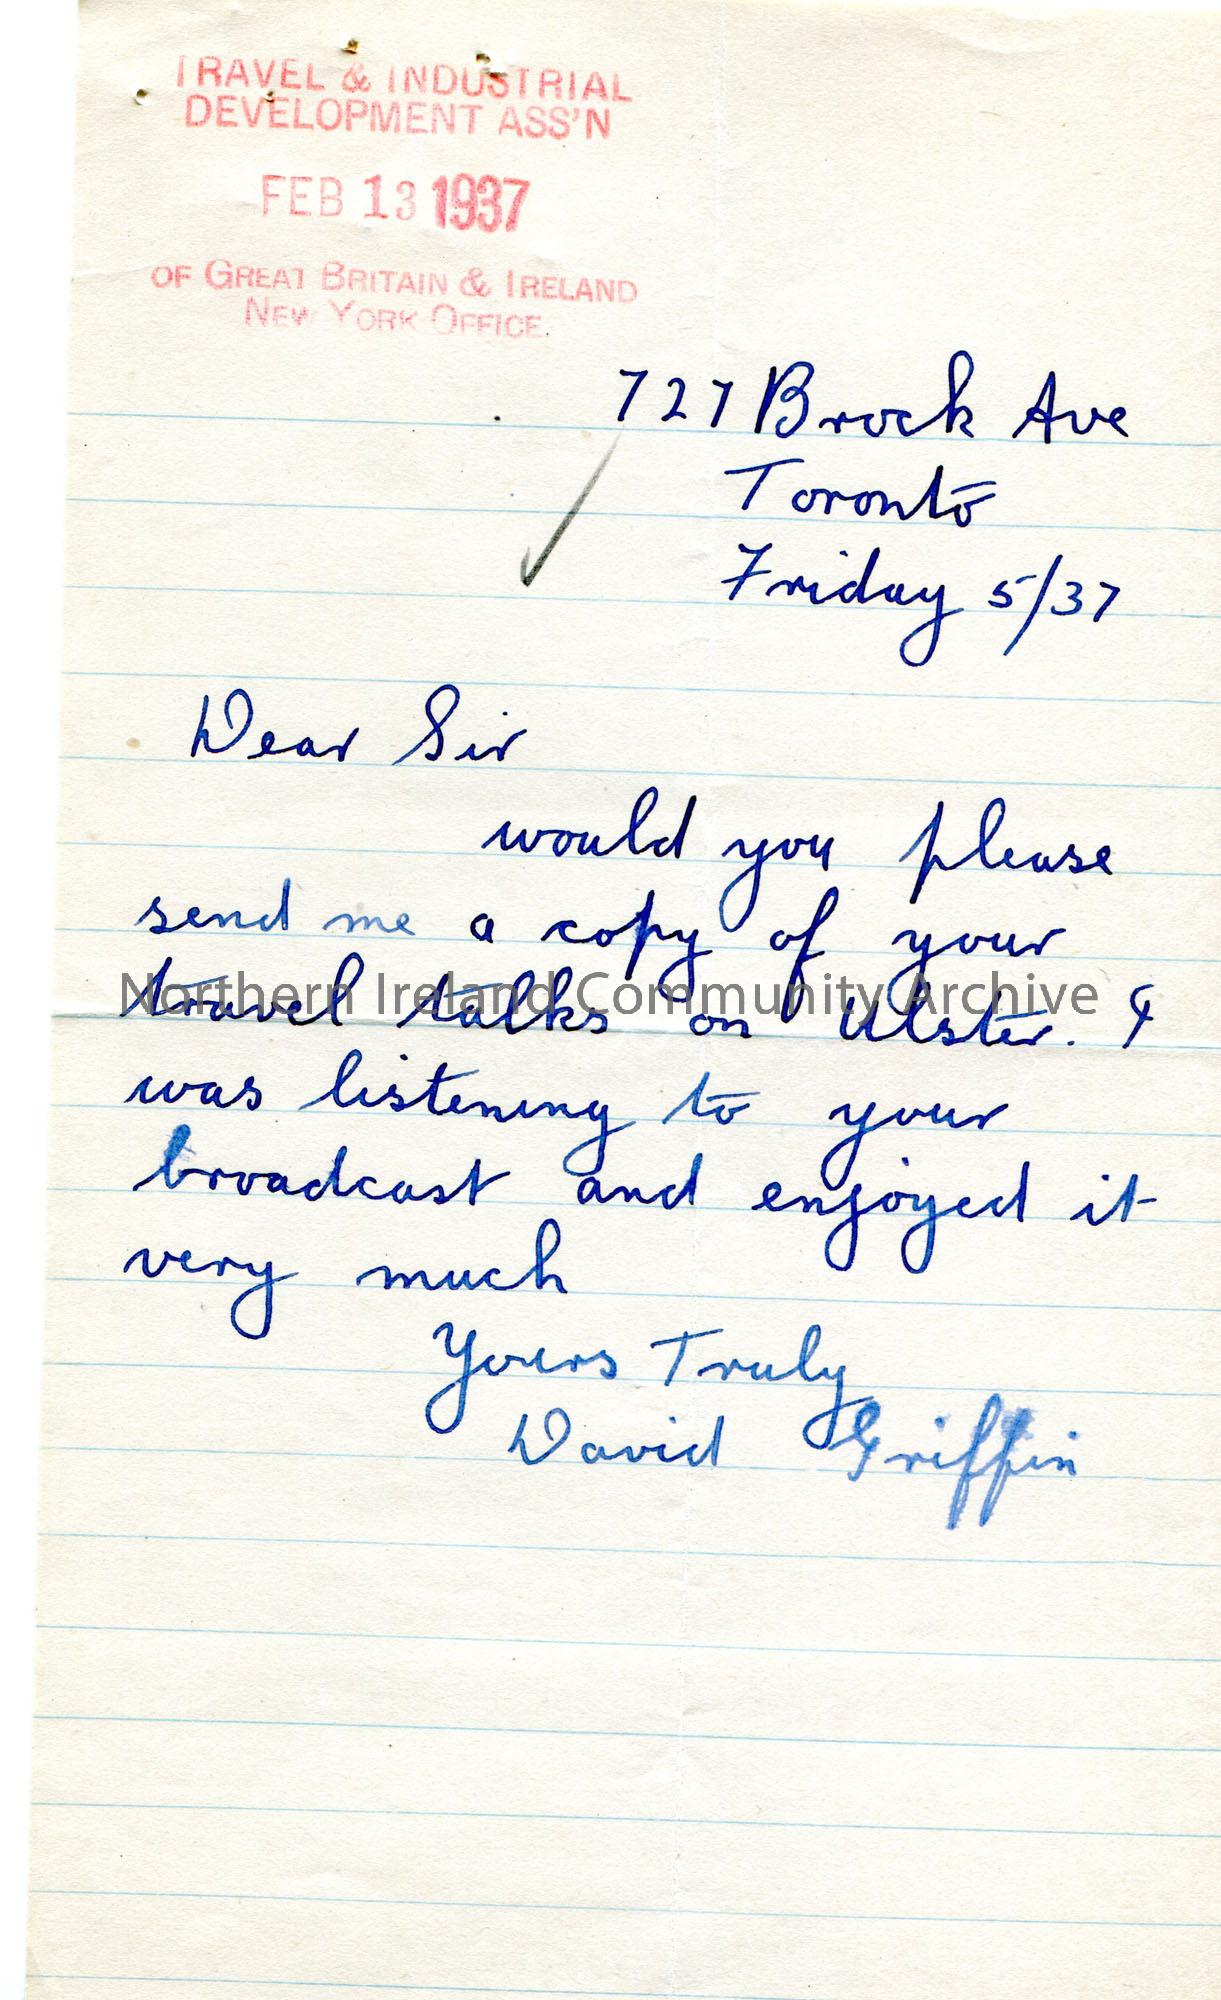 TRAVEL & INDUSTRIAL
DEVELOPMENT ASS'N
FEB 13 1937
OF GREAT BRITAIN & IRELAND
NEW YORK OFFICE.
727 Brock Ave
Toronto
Friday 5/37
Dear Sir
would you please
send me a copy of your
travel talks on Ulster. I
Northern Ireland Community Archive
was listening to your
broadcast and enjoyed it
very much
Yours Truly
David Griffin